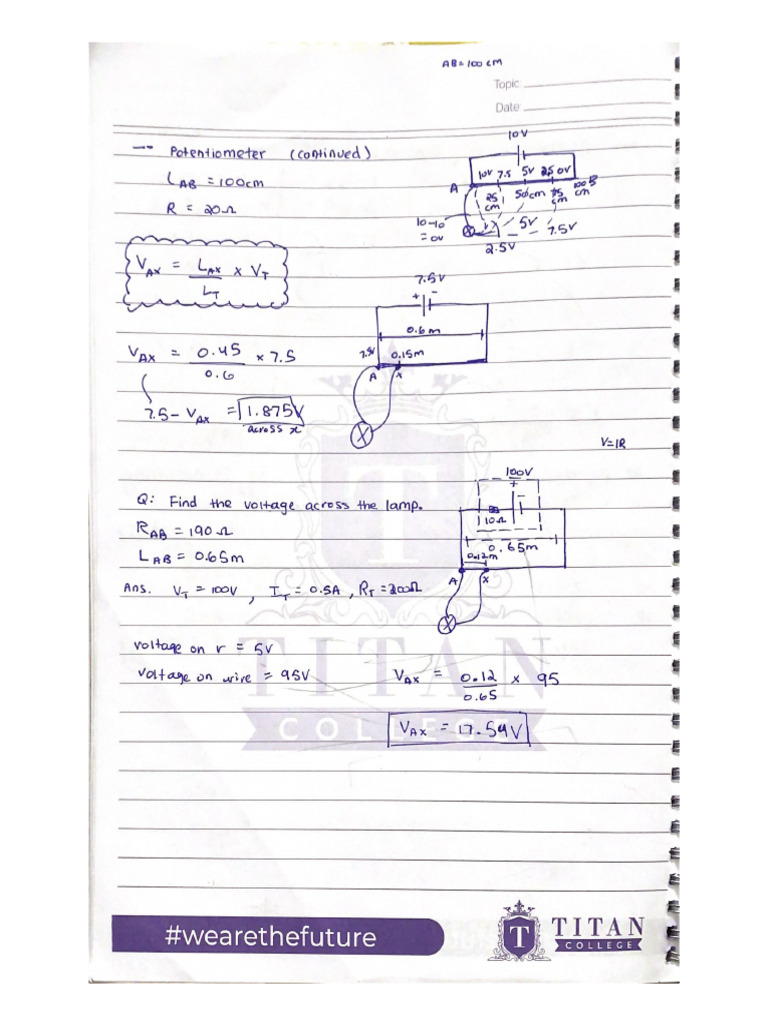 AB = 100 cm
Topic:
Date:
-- Potentiometer (continued)
L_AB = 100cm
R = 20Ω
10V
10V 7.5 5V 2.5 0V
A
B
25 cm 50cm 75 cm 100 cm
10-10 = 0V
2.5V
5V
7.5V
V_AX = L_AX / L_T x V_T
7.5V
+ -
0.6m
7.5V 0.15m
A X
V_AX = 0.45 / 0.6 x 7.5
7.5 - V_AX = 1.875V
across x
V=IR
Q: Find the voltage across the lamp.
R_AB = 190Ω
L_AB = 0.65m
100V
+ -
10Ω
0.65m
0.12m
A X
Ans. V_T = 100V, I_T = 0.5A, R_T = 200Ω
voltage on r = 5V
voltage on wire = 95V
V_AX = 0.12 / 0.65 x 95
V_AX = 17.54V
T
TITAN
COLLEGE
#wearethefuture
T
TITAN
COLLEGE